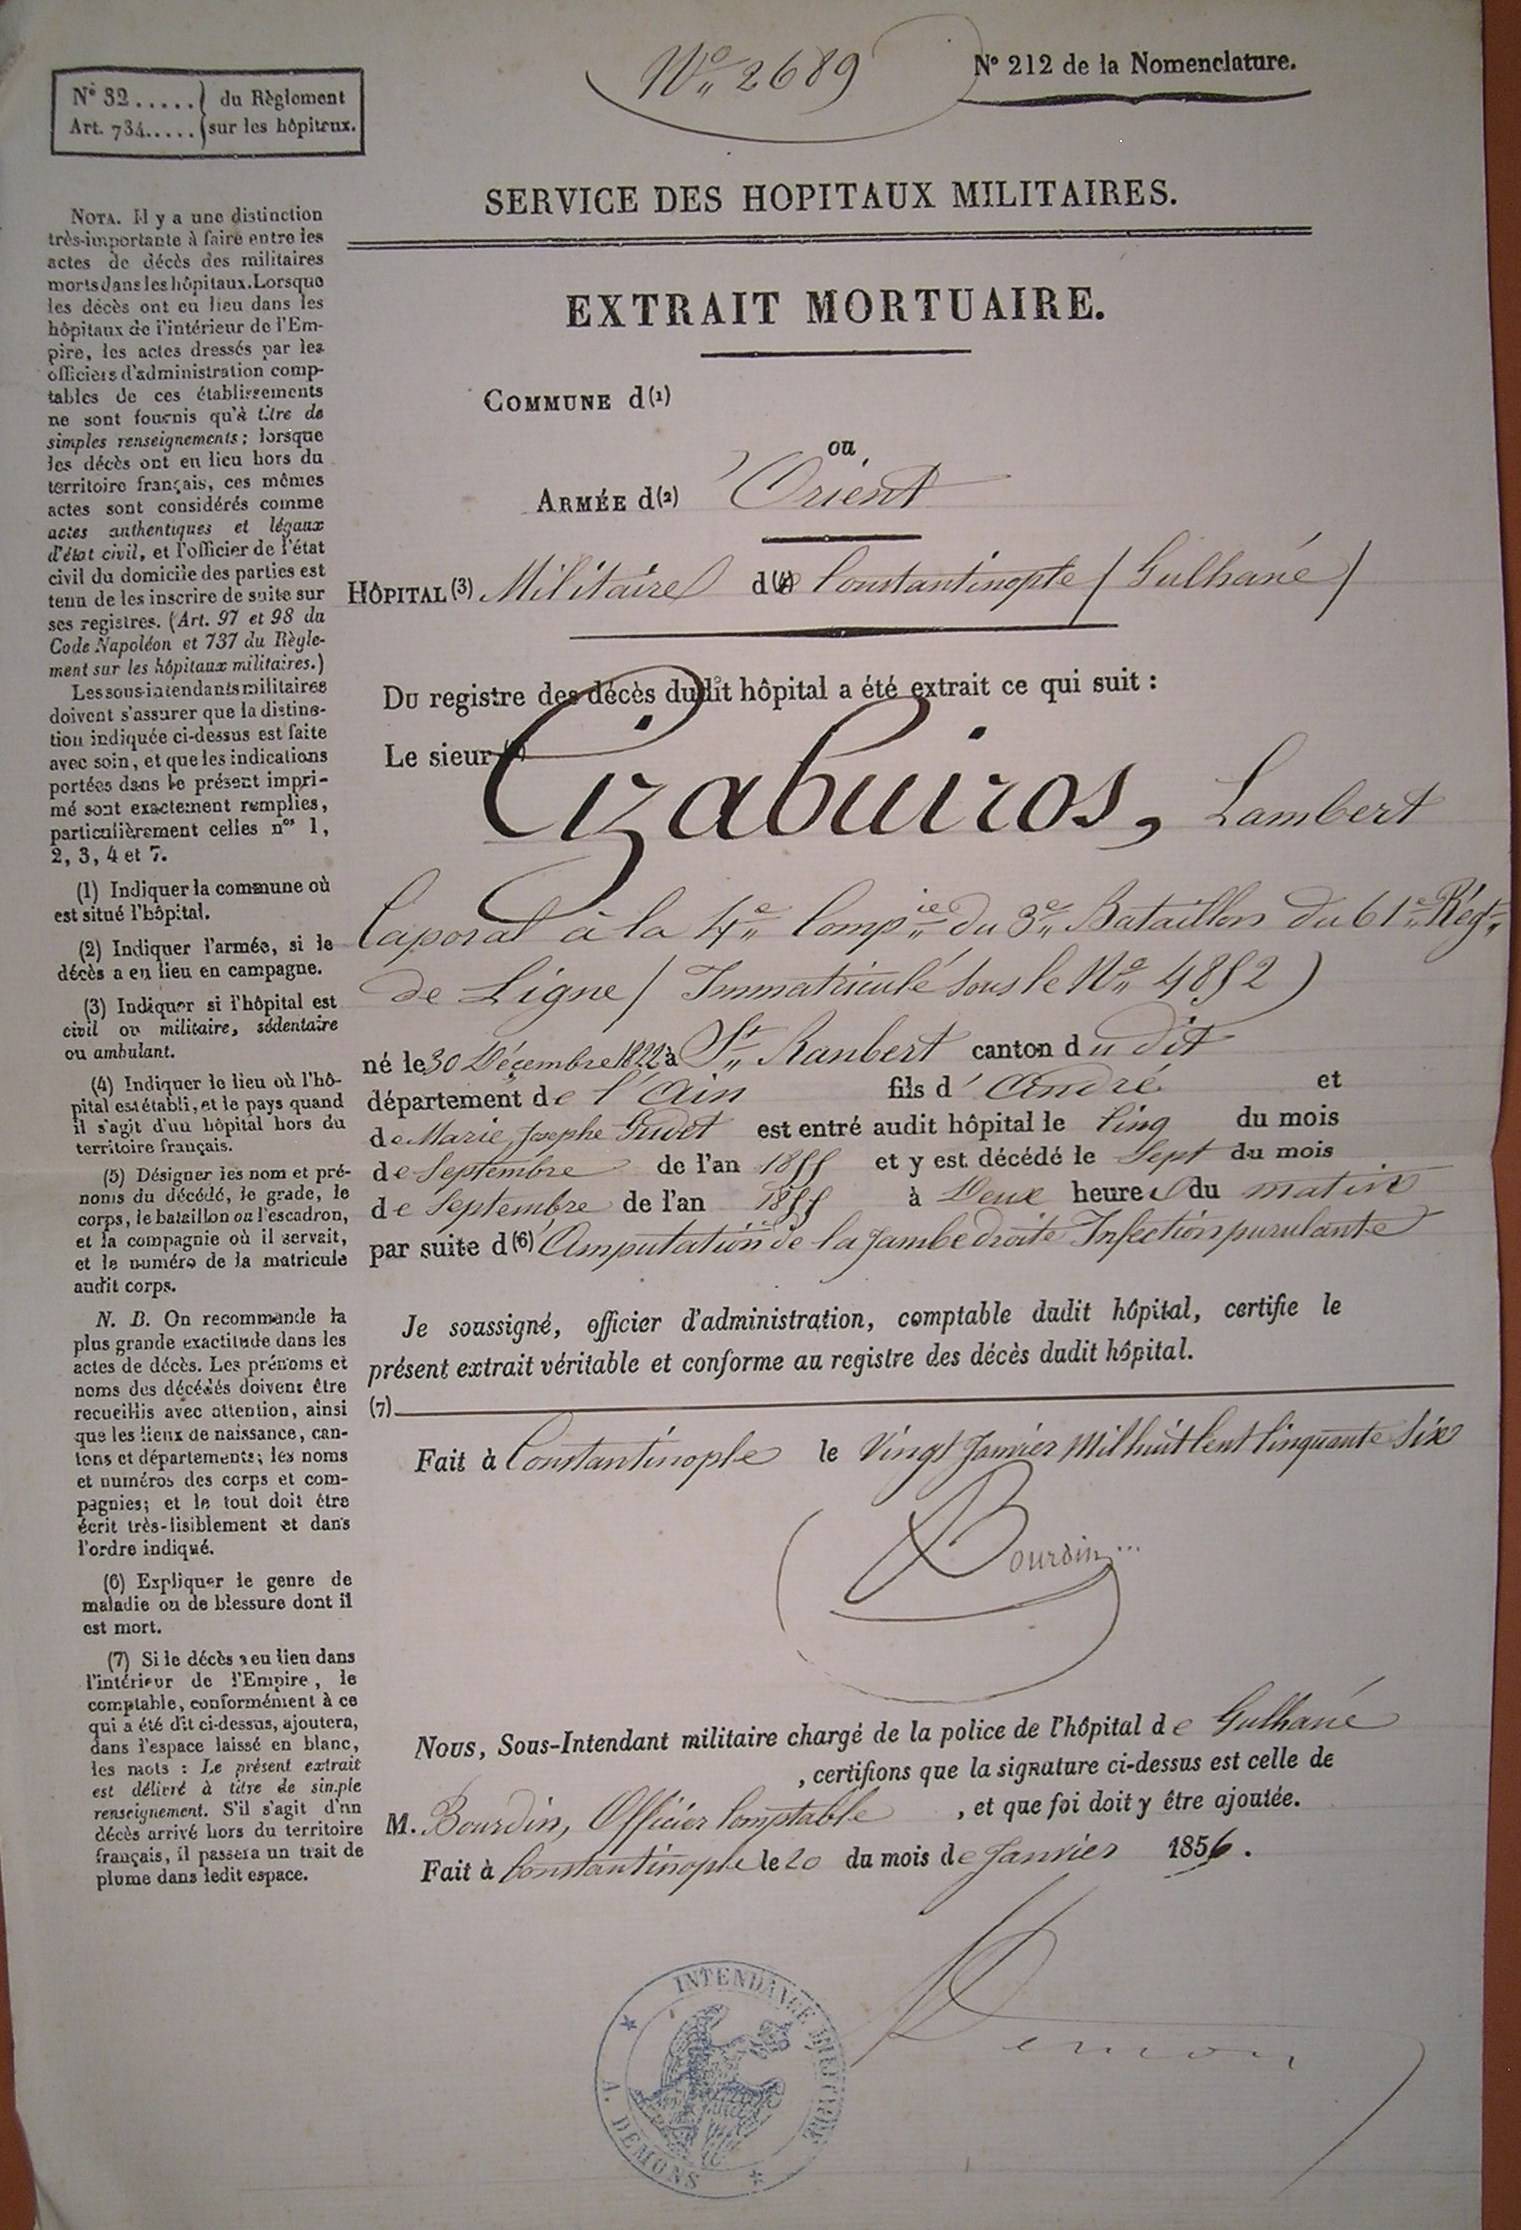 N° 2689
N° 212 de la Nomenclature.
N° 32..... du Règlement
Art. 734..... sur les hôpitaux.
SERVICE DES HOPITAUX MILITAIRES.
EXTRAIT MORTUAIRE.
COMMUNE d(1)
ou
ARMÉE d(2) 'Orient
HÔPITAL (3) Militaire d(4)e Constantinople / Gulhané /
Du registre des décès dudit hôpital a été extrait ce qui suit :
Le sieur (5) Cizabuiros, Lambert
Caporal à la 4e Compie du 3e Bataillon du 61e Régt
de Ligne / Immatriculé sous le N° 4852 )
né le 30 Décembre 1822 à St Ranbert canton du dit
département de l'Ain fils d'André et
de Marie Josephe Gudet est entré audit hôpital le Cinq du mois
de Septembre de l'an 1855 et y est décédé le Sept du mois
de Septembre de l'an 1855 à Deux heures du matin
par suite d(6) Amputation de la jambe droite Infection purulante
Je soussigné, officier d'administration, comptable dudit hôpital, certifie le
présent extrait véritable et conforme au registre des décès dudit hôpital.
(7)
Fait à Constantinople le Vingt Janvier Mil huit Cent Cinquante Six
Bourdin
Nous, Sous-Intendant militaire chargé de la police de l'hôpital de Gulhané
, certifions que la signature ci-dessus est celle de
M. Bourdin, Officier Comptable , et que foi doit y être ajoutée.
Fait à Constantinople le 20 du mois de Janvier 1856.
Demons
INTENDANCE MILITAIRE
A. DEMONS
NOTA. Il y a une distinction
très-importante à faire entre les
actes de décès des militaires
morts dans les hôpitaux. Lorsque
les décès ont eu lieu dans les
hôpitaux de l'intérieur de l'Em-
pire, les actes dressés par les
officiers d'administration comp-
tables de ces établissements
ne sont fournis qu'à titre de
simples renseignements; lorsque
les décès ont eu lieu hors du
territoire français, ces mêmes
actes sont considérés comme
actes authentiques et légaux
d'état civil, et l'officier de l'état
civil du domicile des parties est
tenu de les inscrire de suite sur
ses registres. (Art. 97 et 98 du
Code Napoléon et 737 du Règle-
ment sur les hôpitaux militaires.)
Les sous-intendants militaires
doivent s'assurer que la distinc-
tion indiquée ci-dessus est faite
avec soin, et que les indications
portées dans le présent impri-
mé sont exactement remplies,
particulièrement celles nos 1,
2, 3, 4 et 7.
(1) Indiquer la commune où
est situé l'hôpital.
(2) Indiquer l'armée, si le
décès a eu lieu en campagne.
(3) Indiquer si l'hôpital est
civil ou militaire, sédentaire
ou ambulant.
(4) Indiquer le lieu où l'hô-
pital est établi, et le pays quand
il s'agit d'un hôpital hors du
territoire français.
(5) Désigner les nom et pré-
noms du décédé, le grade, le
corps, le bataillon ou l'escadron,
et la compagnie où il servait,
et le numéro de la matricule
audit corps.
N. B. On recommande la
plus grande exactitude dans les
actes de décès. Les prénoms et
noms des décédés doivent être
recueillis avec attention, ainsi
que les lieux de naissance, can-
tons et départements; les noms
et numéros des corps et com-
pagnies; et le tout doit être
écrit très-lisiblement et dans
l'ordre indiqué.
(6) Expliquer le genre de
maladie ou de blessure dont il
est mort.
(7) Si le décès a eu lieu dans
l'intérieur de l'Empire, le
comptable, conformément à ce
qui a été dit ci-dessus, ajoutera,
dans l'espace laissé en blanc,
les mots : Le présent extrait
est délivré à titre de simple
renseignement. S'il s'agit d'un
décès arrivé hors du territoire
français, il passera un trait de
plume dans ledit espace.